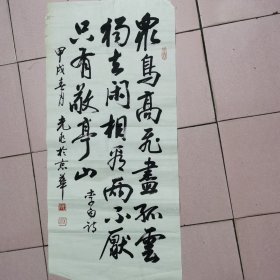 众鳥高飛盡孤雲
獨去闲相看兩不厭
只有敬亭山
李白詩
甲戌春月
於京華